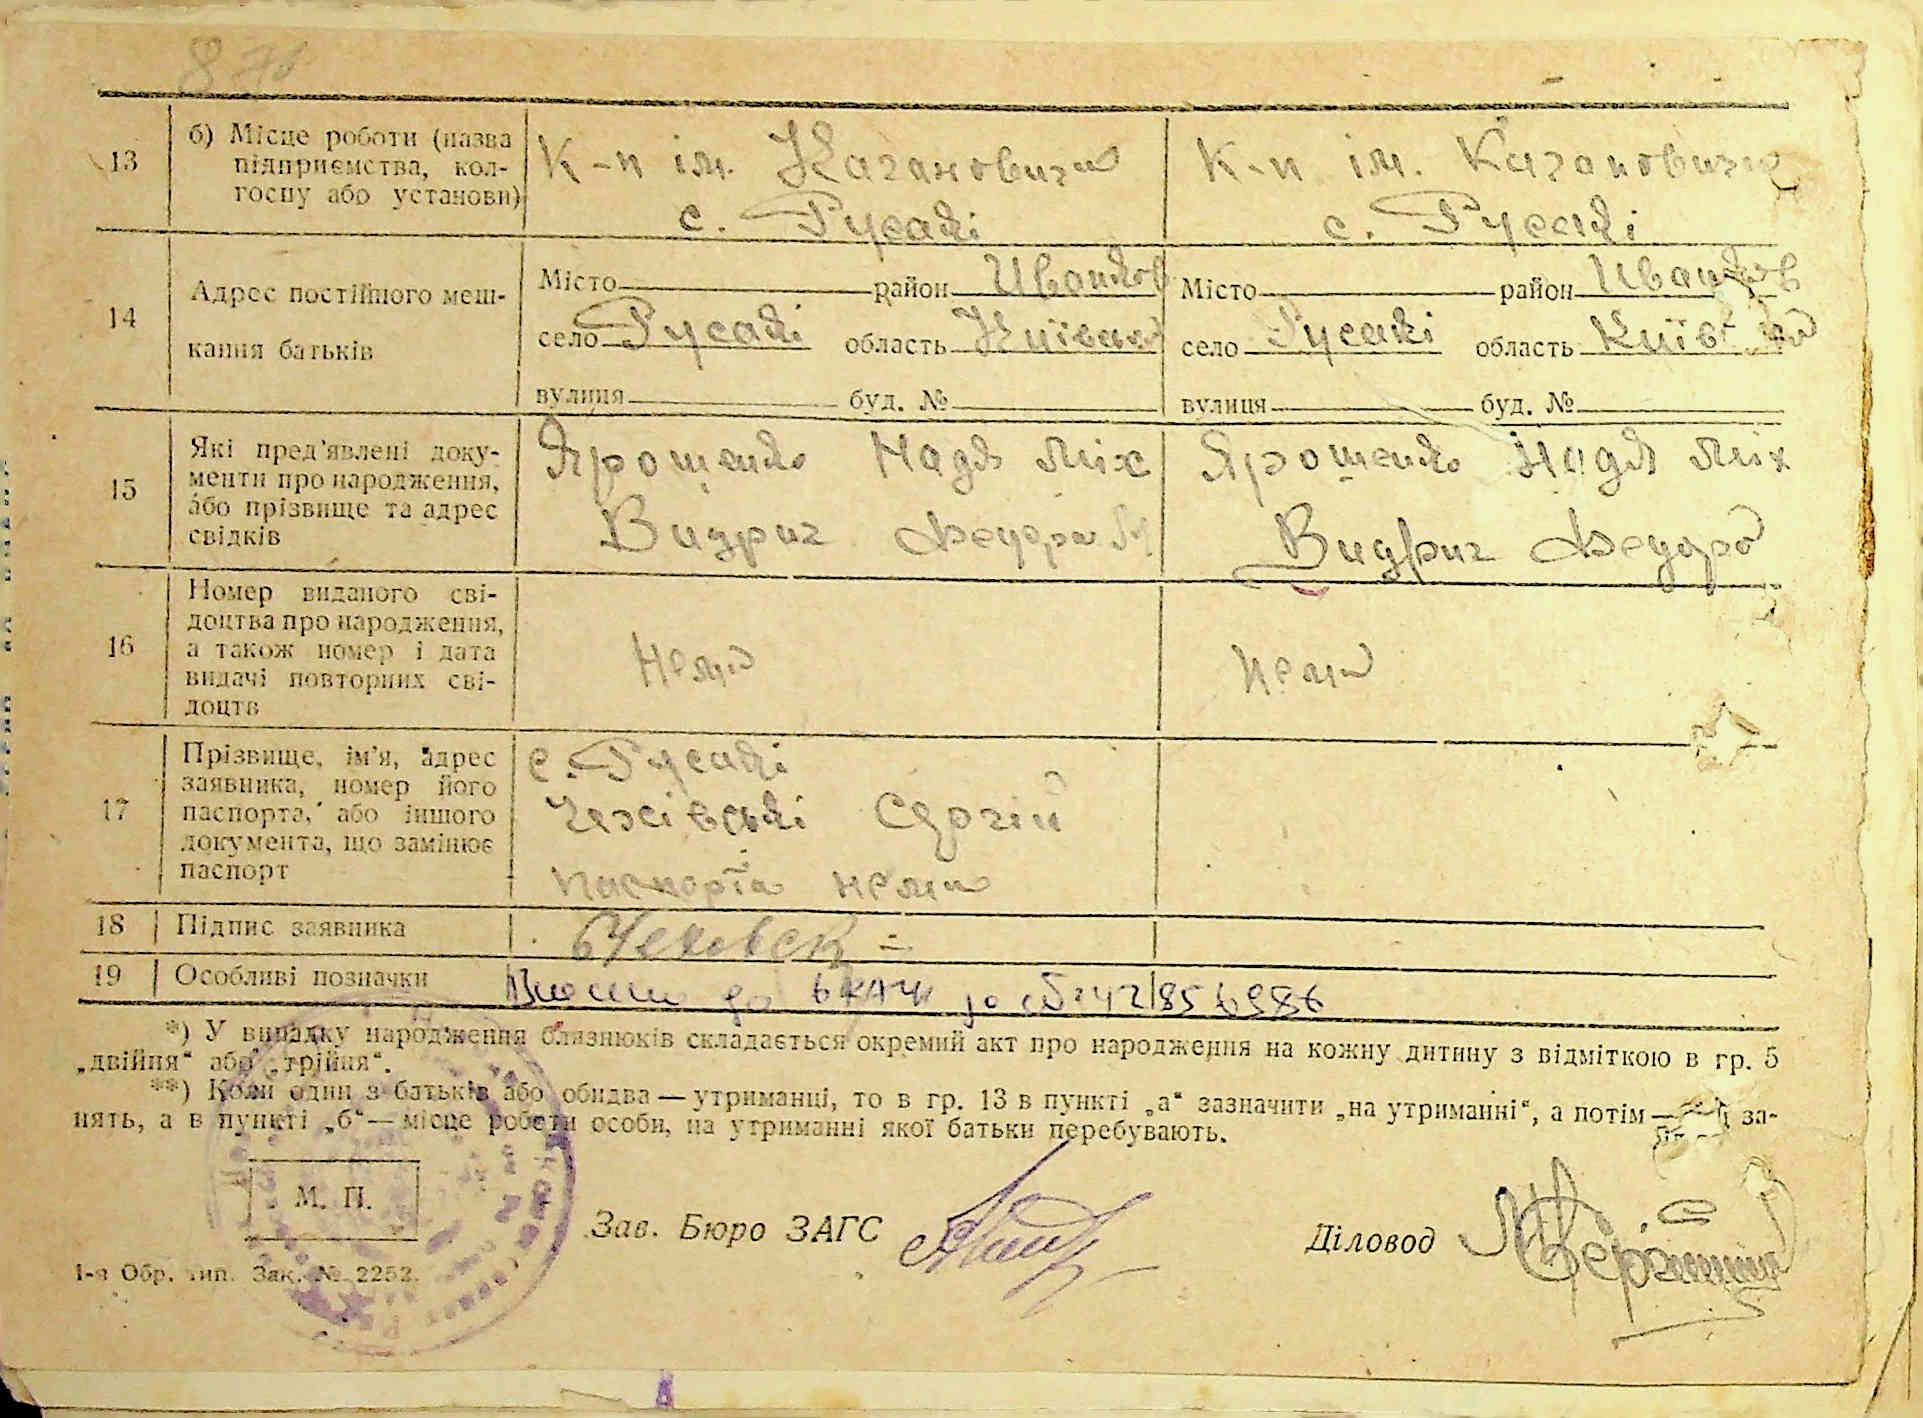 871
13
б) Місце роботи (назва
підприємства, кол-
госпу або установи)
К-п ім. Кагановича
с. Русакі
К-п ім. Кагановича
с. Русакі
14
Адрес постійного меш-
кання батьків
Місто район Иванков
село Русакі область Київська
вулиця буд. №
Місто район Иванков
село Русакі область Київ
вулиця буд. №
15
Які пред'явлені доку-
менти про народження,
або прізвище та адрес
свідків
Ярошенко Надя Міх
Видриг Федора М
Ярошенко Надя Міх
Видриг Федора
16
Номер виданого сві-
доцтва про народження,
а також номер і дата
видачі повторних сві-
доцтв
Нема
Нема
17
Прізвище, ім'я, адрес
заявника, номер його
паспорта, або іншого
документа, що замінює
паспорт
с. Русакі
Сергій
паспорта нема
18 Підпис заявника
19 Особливі позначки
до
*) У випадку народження близнюків складається окремий акт про народження на кожну дитину з відміткою в гр. 5
„двійня“ або „трійня“.
**) Коли один з батьків або обидва — утриманці, то в гр. 13 в пункті „а“ зазначити „на утриманні“, а потім — за-
нять, а в пункті „б“ — місце роботи особи, на утриманні якої батьки перебувають.
М. П.
Зав. Бюро ЗАГС
Діловод
1-а Обр. тип. Зак. № 2252.